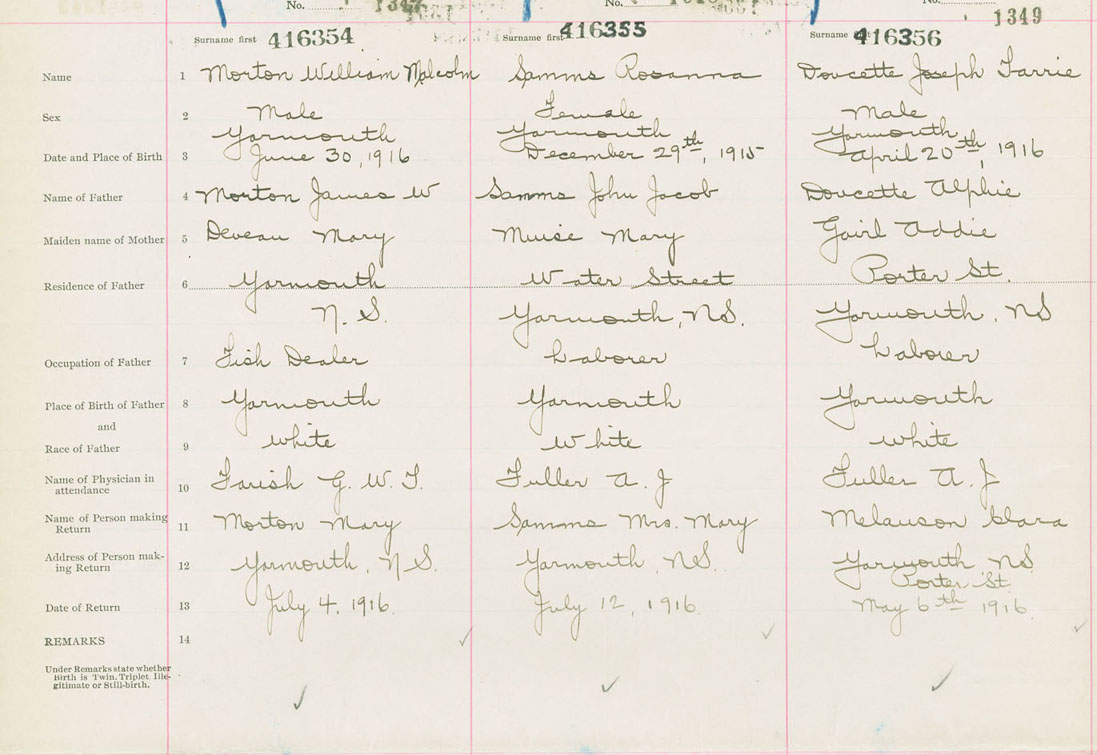 No. 1347
No.
No. 1349
Surname first 416354
Surname first 416355
Surname 416356
Name 1 Morton William Malcolm Samms Rosanna Doucette Joseph Larrie
Sex 2 Male Female Male
Yarmouth Yarmouth Yarmouth
Date and Place of Birth 3 June 30, 1916 December 29th, 1915 April 20th, 1916
Name of Father 4 Morton James W Samms John Jacob Doucette Alphie
Maiden name of Mother 5 Deveau Mary Muise Mary Addie
Residence of Father 6 Yarmouth Water Street Porter St.
N. S. Yarmouth, NS. Yarmouth, NS
Occupation of Father 7 Fish Dealer Laborer Laborer
Place of Birth of Father 8 Yarmouth Yarmouth Yarmouth
and
Race of Father 9 white White white
Name of Physician in
attendance 10 Farish G. W. T. Fuller A. J Fuller A. J
Name of Person making
Return 11 Morton Mary Samms Mrs. Mary Melanson Clara
Address of Person mak-
ing Return 12 Yarmouth, N S. Yarmouth, NS. Yarmouth, NS
Porter St.
Date of Return 13 July 4, 1916. July 12, 1916. May 6th 1916
REMARKS 14
Under Remarks state whether
Birth is Twin. Triplet Ille-
gitimate or Still-birth.